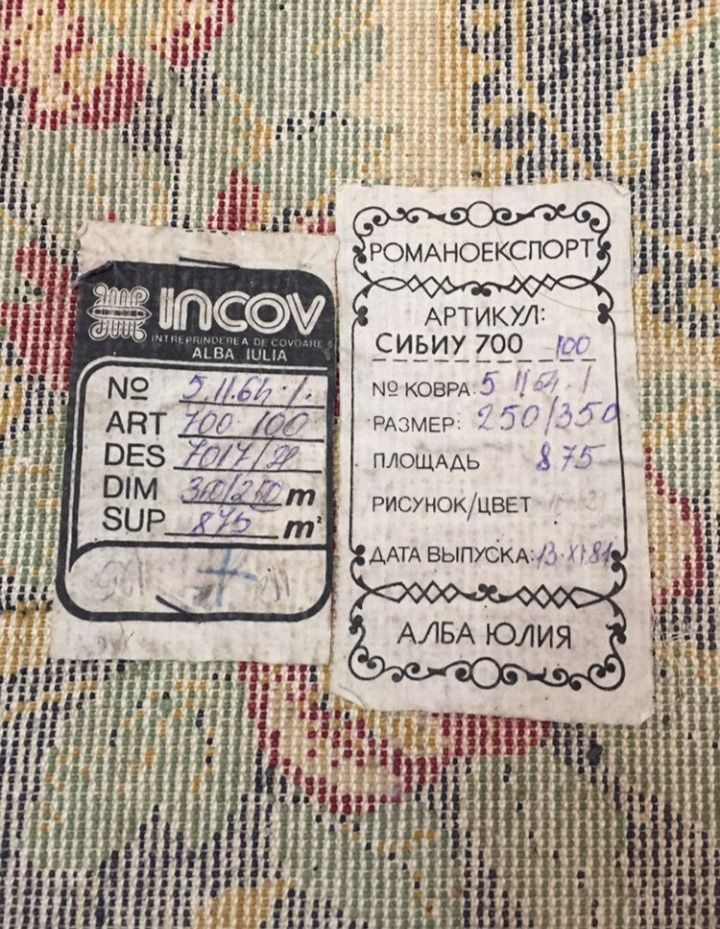 INCOV
INTREPRINDEREA DE COVOARE
ALBA IULIA
№ 5.11.64./.
ART 700 100
DES 7017/
DIM 350/250 m
SUP 875 m²
РОМАНОЕКСПОРТ
АРТИКУЛ:
СИБИУ 700 100
№ КОВРА: 5 11 64 /
РАЗМЕР: 250/350
ПЛОЩАДЬ 875
РИСУНОК/ЦВЕТ
ДАТА ВЫПУСКА: 13 XI 81
АЛБА ЮЛИЯ